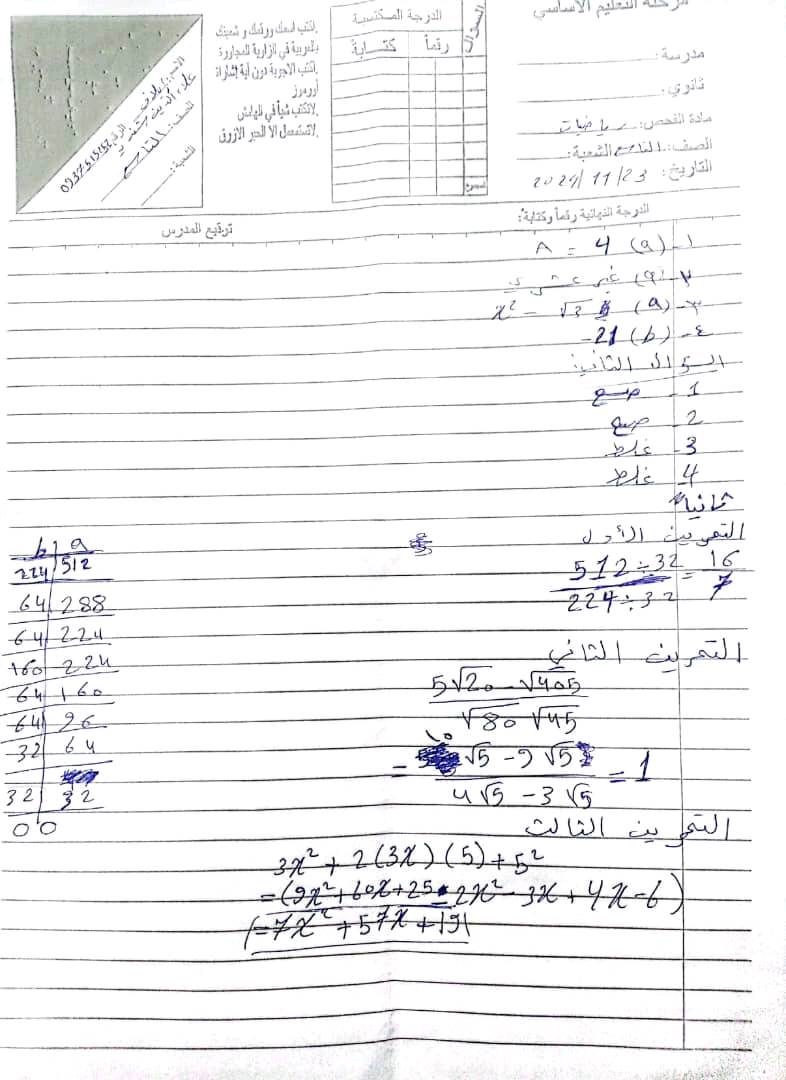 مرحلة التعليم الأساسي
مدرسة:
ثانوي:
مادة الفحص: رياضيات
الصف: التاسع الشعبة:
التاريخ: 2024/11/23
السؤال
الدرجة المكتسبة
رقماً
كتابة
المجموع
اكتب اسمك ورقمك و شعبتك
بالعربية في الزاوية المجاورة
اكتب الأجوبة دون أية إشارة
أو رموز
لا تكتب شيئاً في الهامش
لا تستعمل إلا الحبر الأزرق
الاسم:
علاء الدين
الرقم: 0937615152
الصف: التاسع
الشعبة:
الدرجة النهائية رقماً وكتابة:
توقيع المدرس
١- (a) A = 4
٢- (a) غير عشري
٣- (a) x² - √3
٤- (b) -21
السؤال الثاني:
1- صح
2- صح
3- غلط
4- غلط
ثانياً
التمرين الأول
512÷32 / 224÷32 = 16/7
b | a
224 | 512
64 | 288
64 | 224
160 | 224
64 | 160
64 | 96
32 | 64
32 | 32
0 0
التمرين الثاني
5√20 - √405
√80 √45
= 10√5 - 9√5 / 4√5 - 3√5 = 1
التمرين الثالث
3x² + 2(3x)(5) + 5²
=(9x² + 60x + 25 - 2x² - 3x + 4x - 6)
(=7x² + 57x + 19)